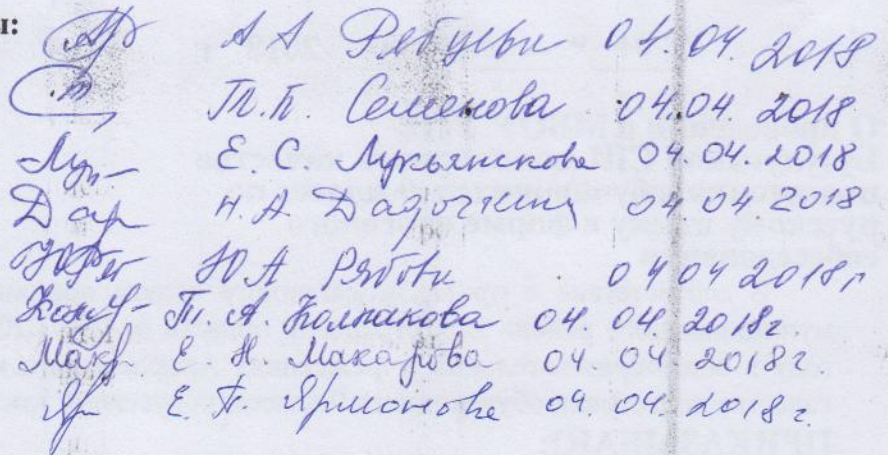 ы:
А А Рябцева 04.04. 2018
Т.П. Семенова 04.04. 2018
Е. С. Лукьянскова 04 04. 2018
Дар Н.А. Дадочкина 04 04 2018
Ю А Рябова 04 04 2018г
Т. А. Колпакова 04. 04. 2018г
Мак Е Н Макарова 04 04 2018г
Яр Е. П Ярмонова 04 04. 2018г.